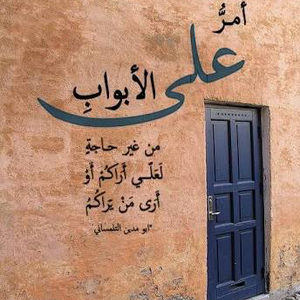 أمرُّ
على
الأبوابِ
من غير حاجةٍ
لَعَلّـي أراكُمْ أوْ
أرَى مَنْ يّراكُمُ
"ابو مدين التلمساني